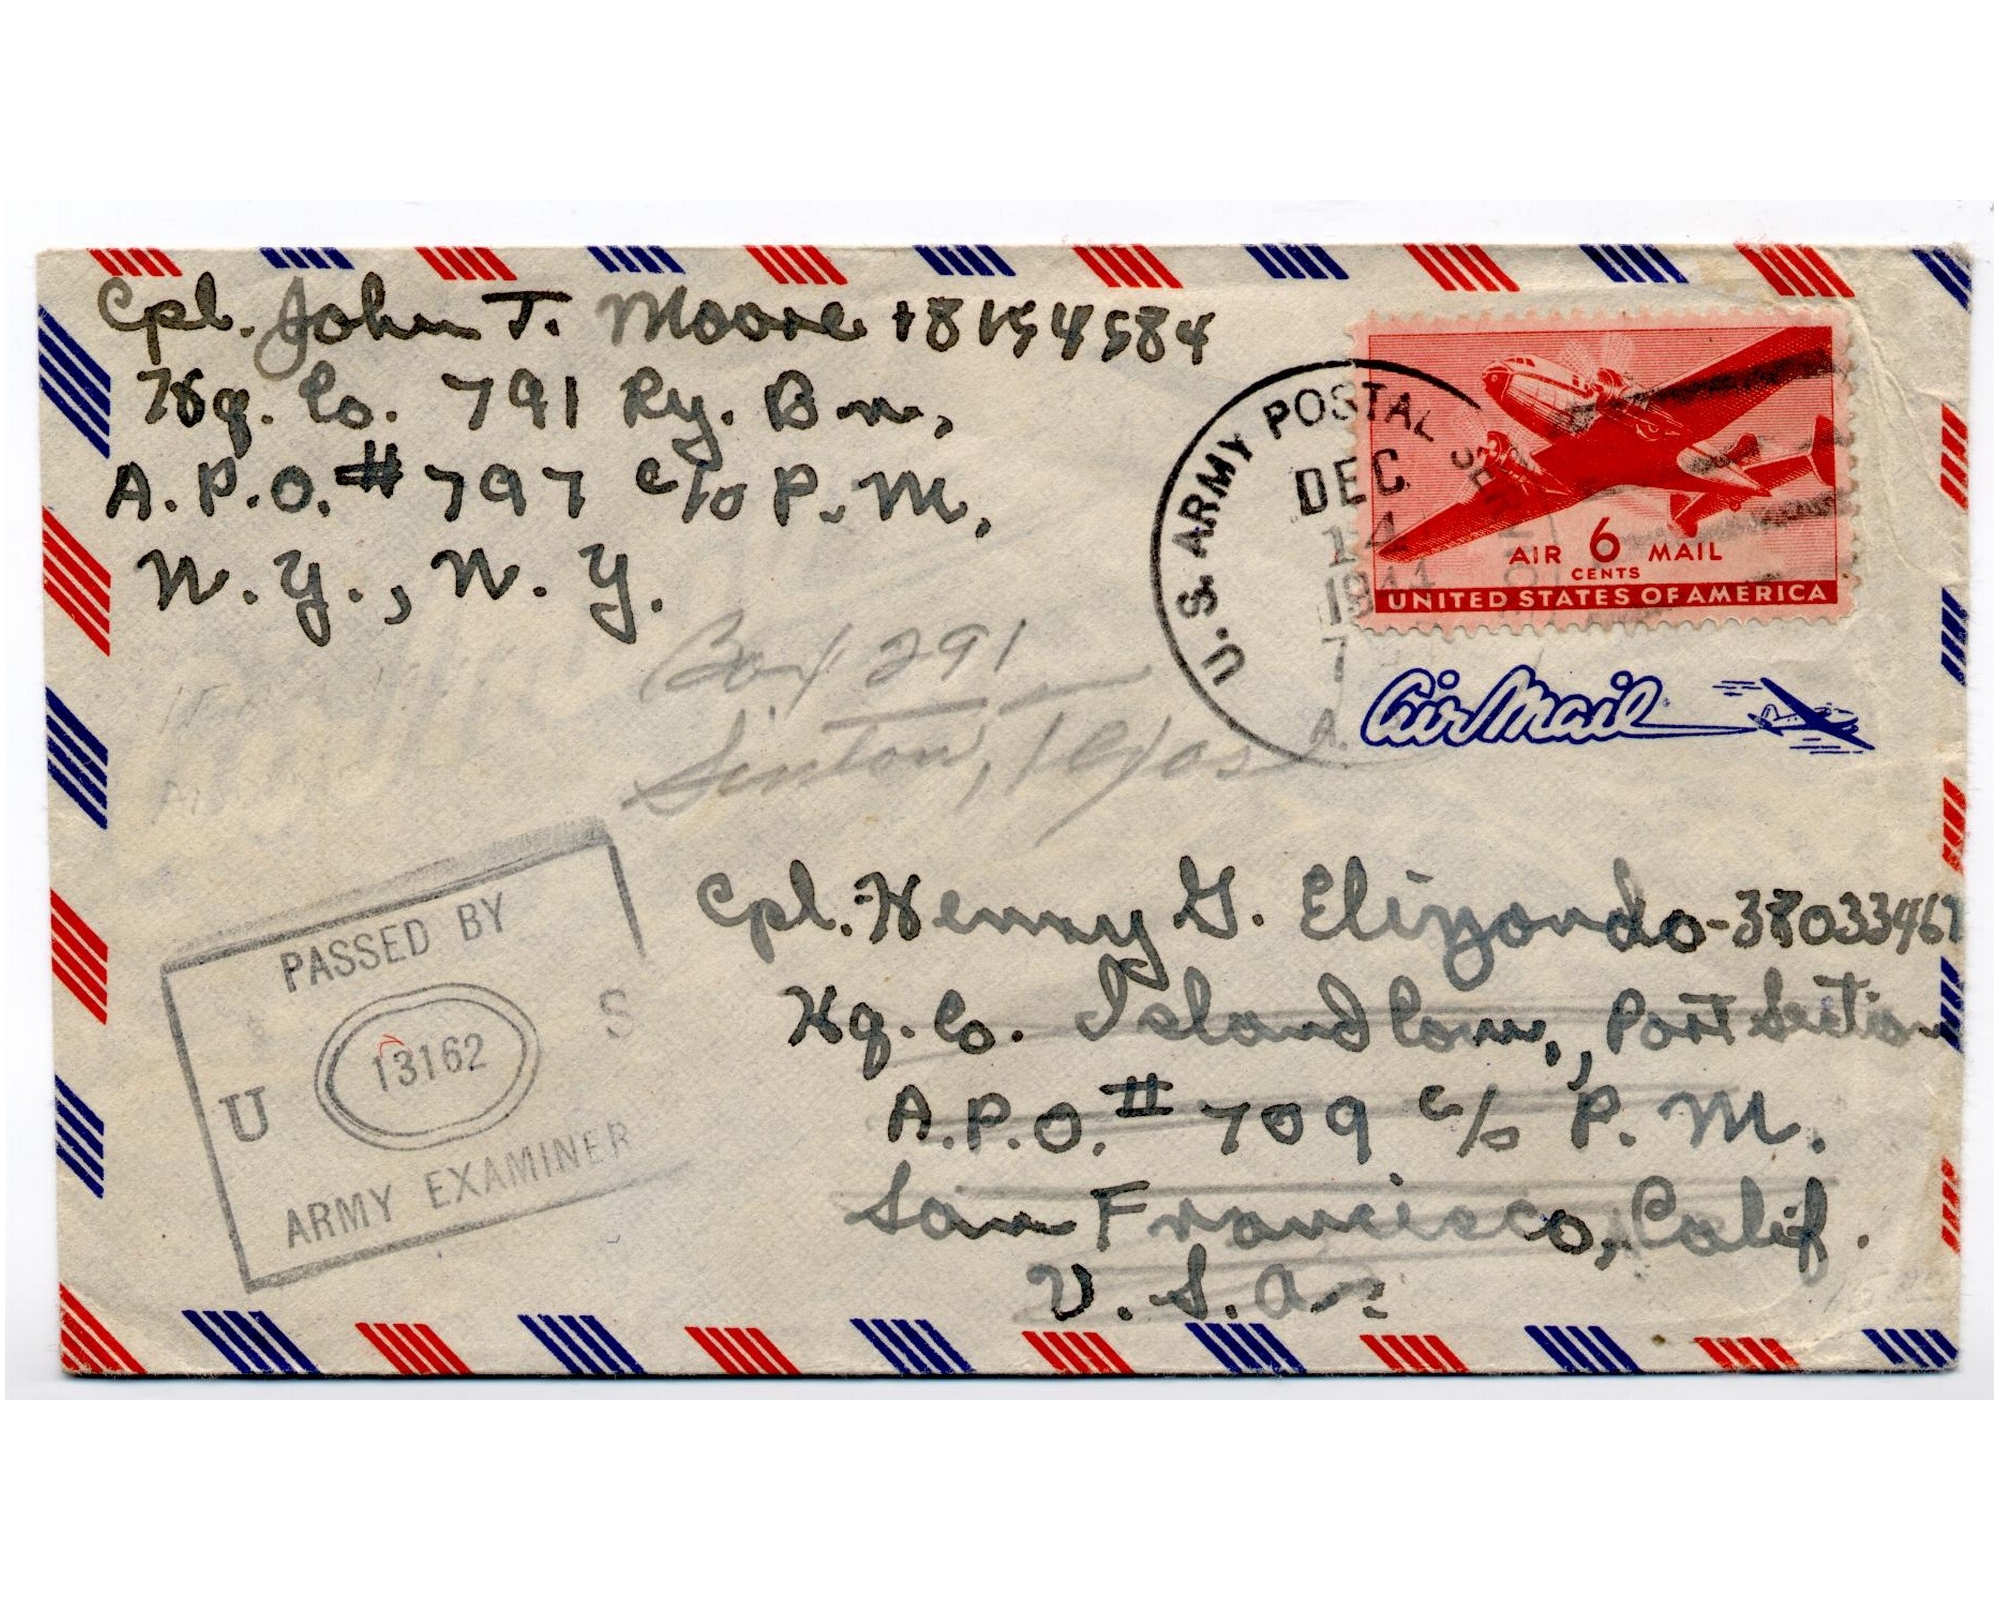 Cpl. John T. Moore 18154584
Hq. Co. 791 Ry. Bn,
A.P.O. # 797 c/o P.M.,
N.Y., N.Y.
U.S. ARMY POSTAL SERVICE
DEC
14
1944
7
A.
AIR 6 MAIL
CENTS
UNITED STATES OF AMERICA
Air Mail
Box 291
Sinton, Texas
PASSED BY
U S
13162
ARMY EXAMINER
Cpl. Henry G. Elizondo-38033467
Hq. Co. Island Com., Port Section
A.P.O. # 709 c/o P.M.
San Francisco, Calif.
U.S.A.